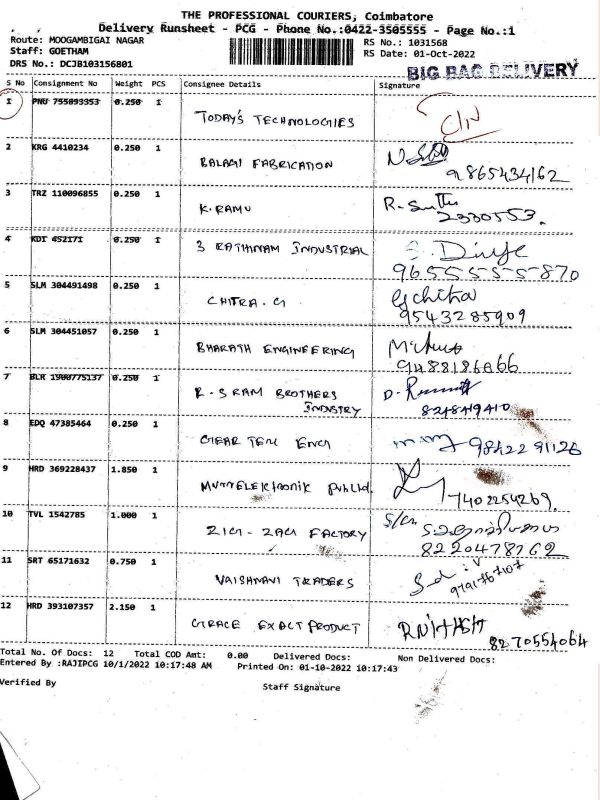 THE PROFESSIONAL COURIERS, Coimbatore
Delivery Runsheet - PCG - Phone No.:0422-3505555 - Page No.:1
Route: MOOGAMBIGAI NAGAR
RS No.: 1031568
Staff: GOETHAM
RS Date: 01-Oct-2022
DRS No.: DCJB103156801
BIG BAG DELIVERY
S No Consignment No Weight PCS Consignee Details Signature
1 PNU 755093353 0.250 1 TODAY'S TECHNOLOGIES
2 KRG 4410234 0.250 1 BALAGI FABRICATION
9865434162
3 TRZ 110096855 0.250 1 K. RAMU R.
2330553.
4 KDT 452171 0.250 1 3 RATHINAM INDUSTRIAL
9655555870
5 SLM 304491498 0.250 1 CHITRA. G G chitra
9543285909
6 SLM 304451057 0.250 1 BHARATH ENGINEERING
9488186866
7 BLR 1900775137 0.250 1 R. S RAM BROTHERS
INDUSTRY
8 EDQ 47385464 0.250 1 GEAR TEK ENG
9842291126
9 HRD 369228437 1.850 1
7402254269.
10 TVL 1542785 1.000 1 ZIG - ZAG FACTORY
8220478762
11 SRT 65171632 0.750 1 VAISHNAVI TRADERS
12 HRD 393107357 2.150 1 GRACE EXACT PRODUCT
8270554064
Total No. Of Docs: 12 Total COD Amt: 0.00 Delivered Docs: Non Delivered Docs:
Entered By :RAJIPCG 10/1/2022 10:17:48 AM Printed On: 01-10-2022 10:17:43
Verified By
Staff Signature